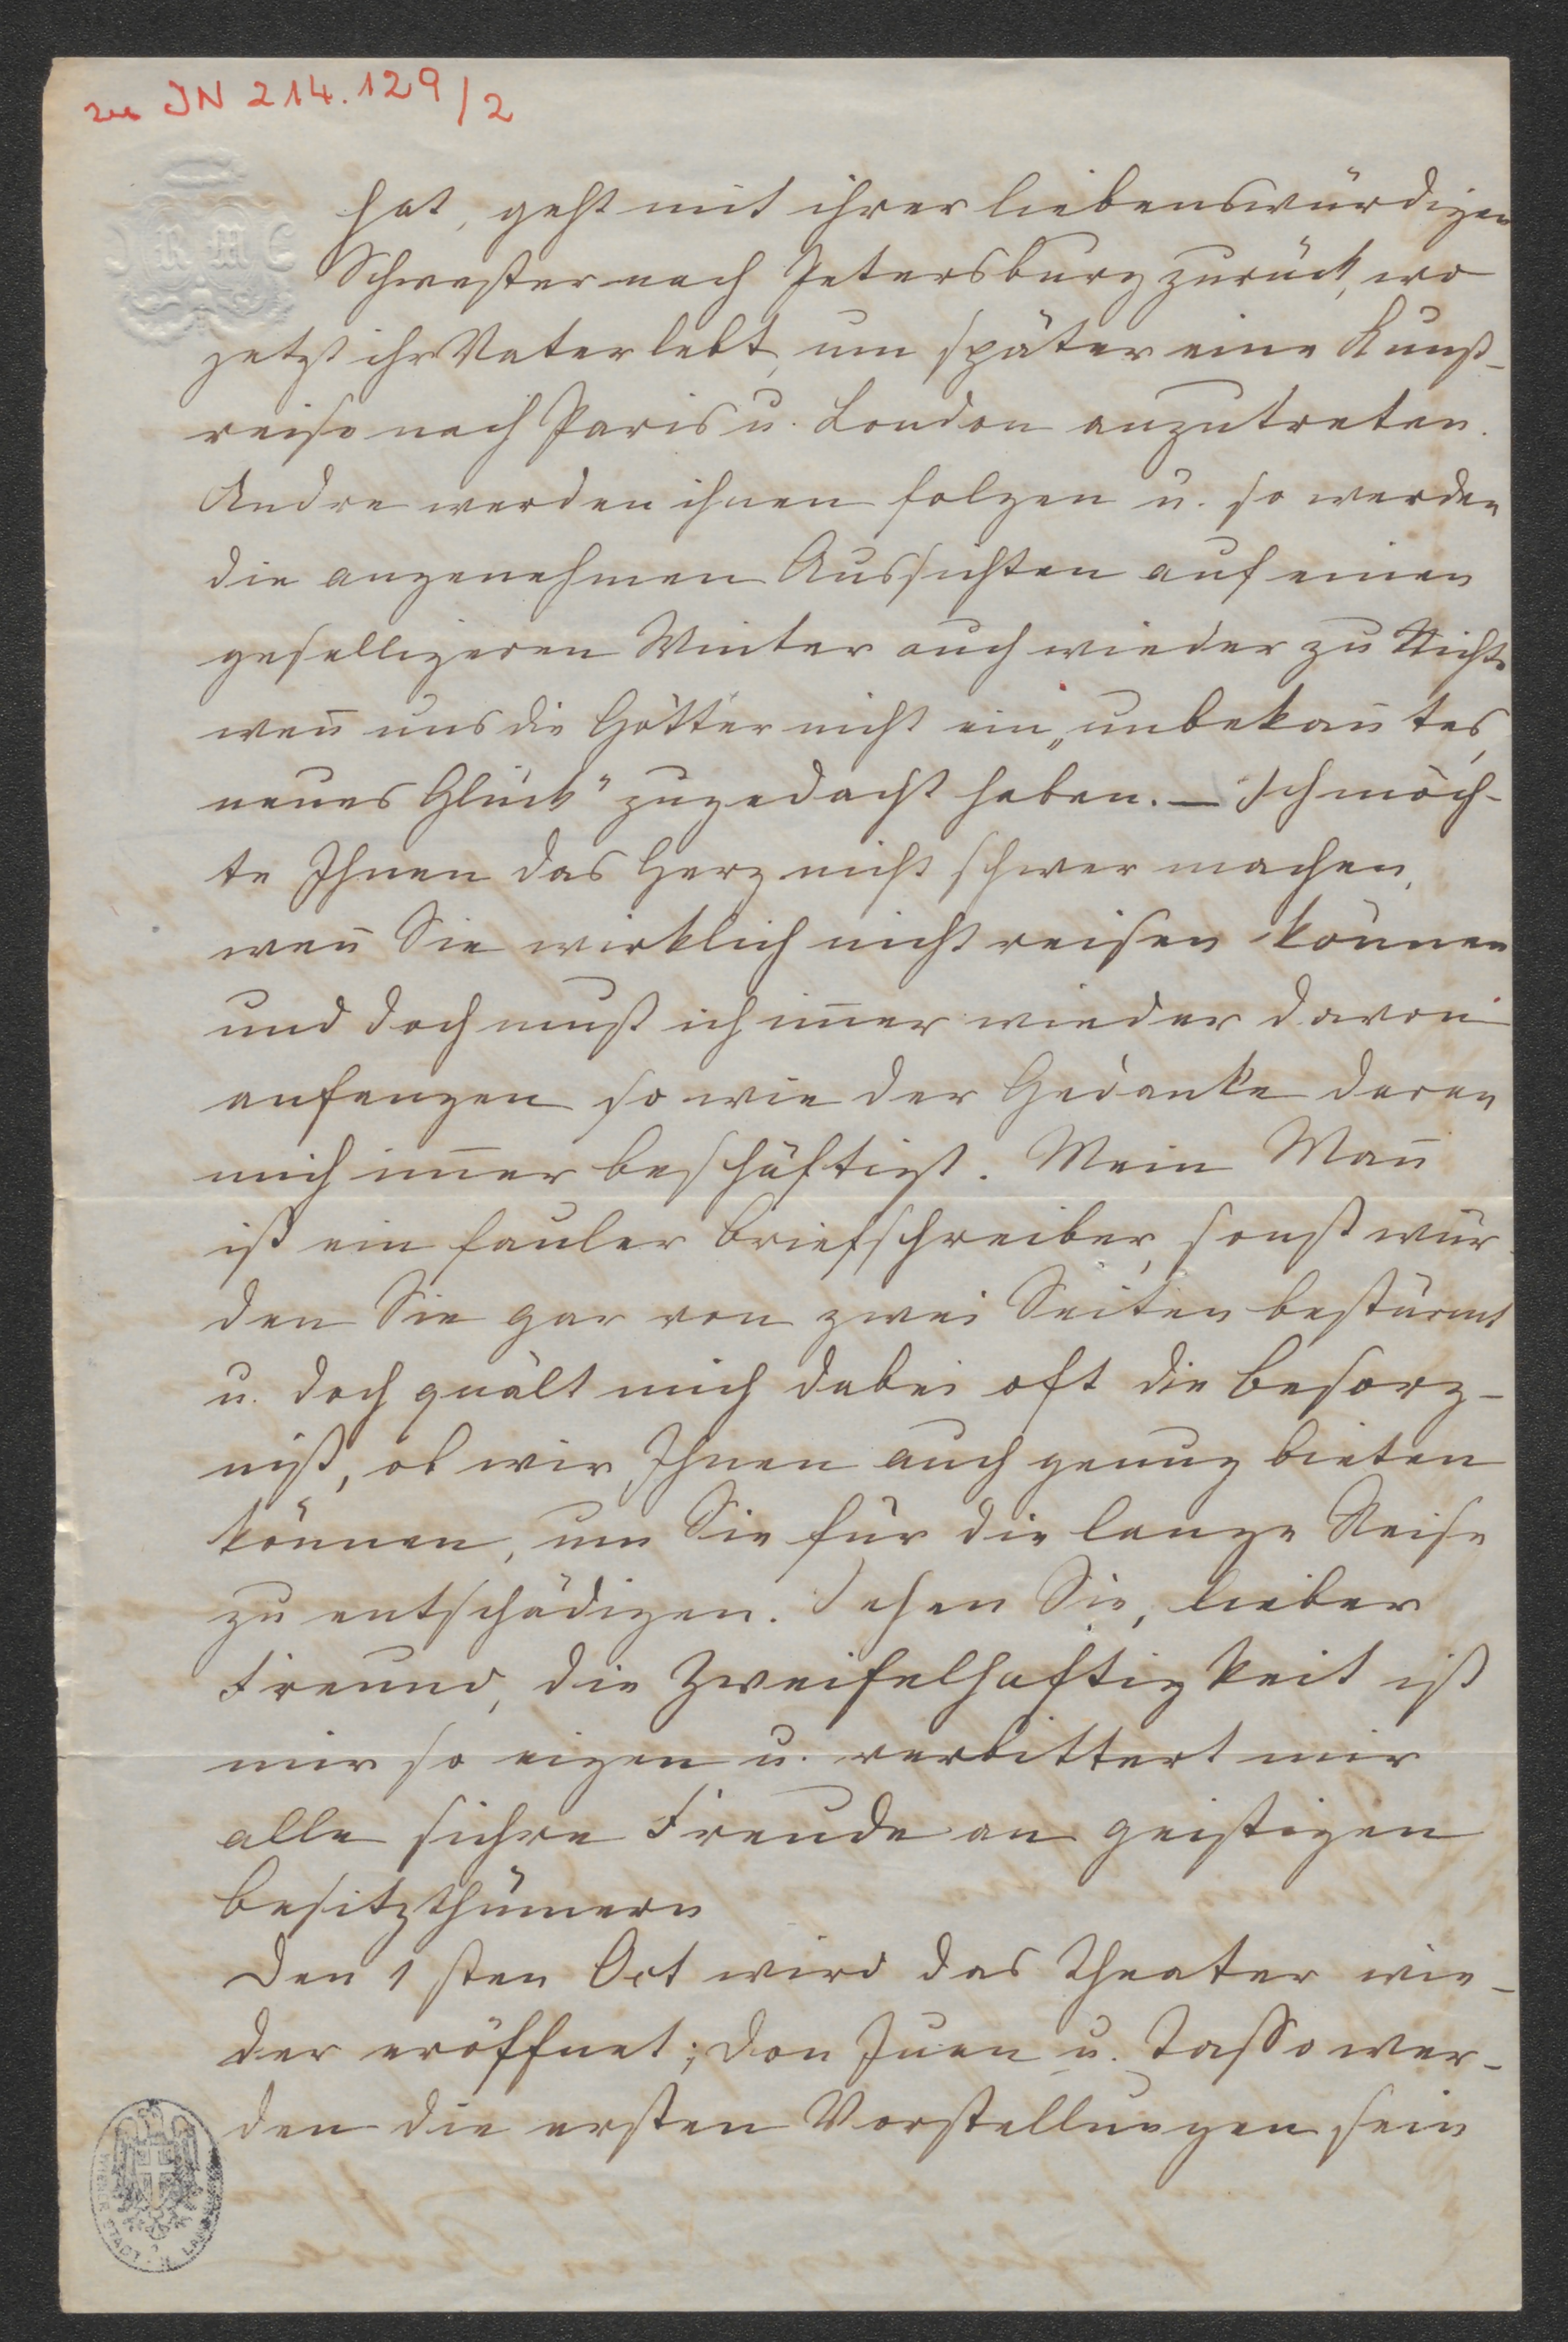 zu JN 214.129/2
hat, geht mit ihrer liebenswürdigen
Schwester nach Petersburg zurück, wo
jetzt ihr Vater lebt, um später eine Kunst-
reise nach Paris u. London anzutreten.
Andre werden ihnen folgen u. so werden
die angenehmen Aussichten auf einen
geselligeren Winter auch wieder zu Nichts
wen̄ uns die Götter nicht ein „unbekan̄tes,
neues Glück" zugedacht haben. — Ich möch-
te Ihnen das Herz nicht schwer machen,
wen̄ Sie wirklich nicht reisen können
und doch muß ich im̄er wieder davon
anfangen so wie der Gedanke daran
mich im̄er beschäftigt. Mein Man̄
ist ein fauler Briefschreiber, sonst wür-
den Sie gar von zwei Seiten bestürmt
u. doch quält mich dabei oft die Besorg-
niß, ob wir Ihnen auch genug bieten
können, um Sie für die lange Reise
zu entschädigen. Sehen Sie, lieber
Freund, die Zweifelhaftigkeit ist
mir so eigen u. verbittert mir
alle sichre Freude an geistigen
Besitzthümern
Den 1sten Oct wird das Theater wie-
der eröffnet; Don Juan u. Tasso wer-
den die ersten Vorstellungen sein